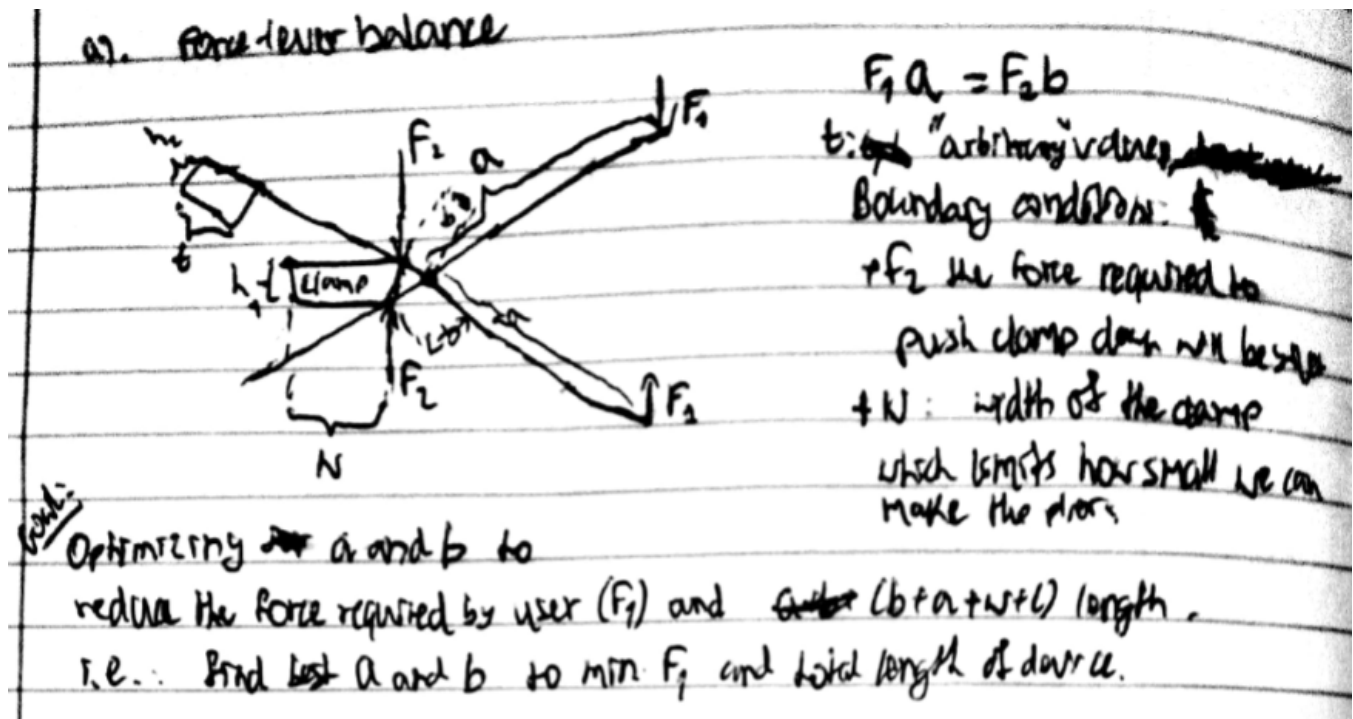 a). Force lever balance
F₁ a = F₂ b
t: "arbitrary" values
Boundary condition:
+ F₂ the force required to
push clamp down will be
+ W: width of the clamp
which limits how small we can
make the
h₂
t
F₂
a
b
F₁
h₁
Clamp
b
a
F₂
F₁
W
Goal:
Optimizing a and b to
reduce the force required by user (F₁) and (b+a+w+l) length.
i.e.: find best a and b to min F₁ and total length of device.